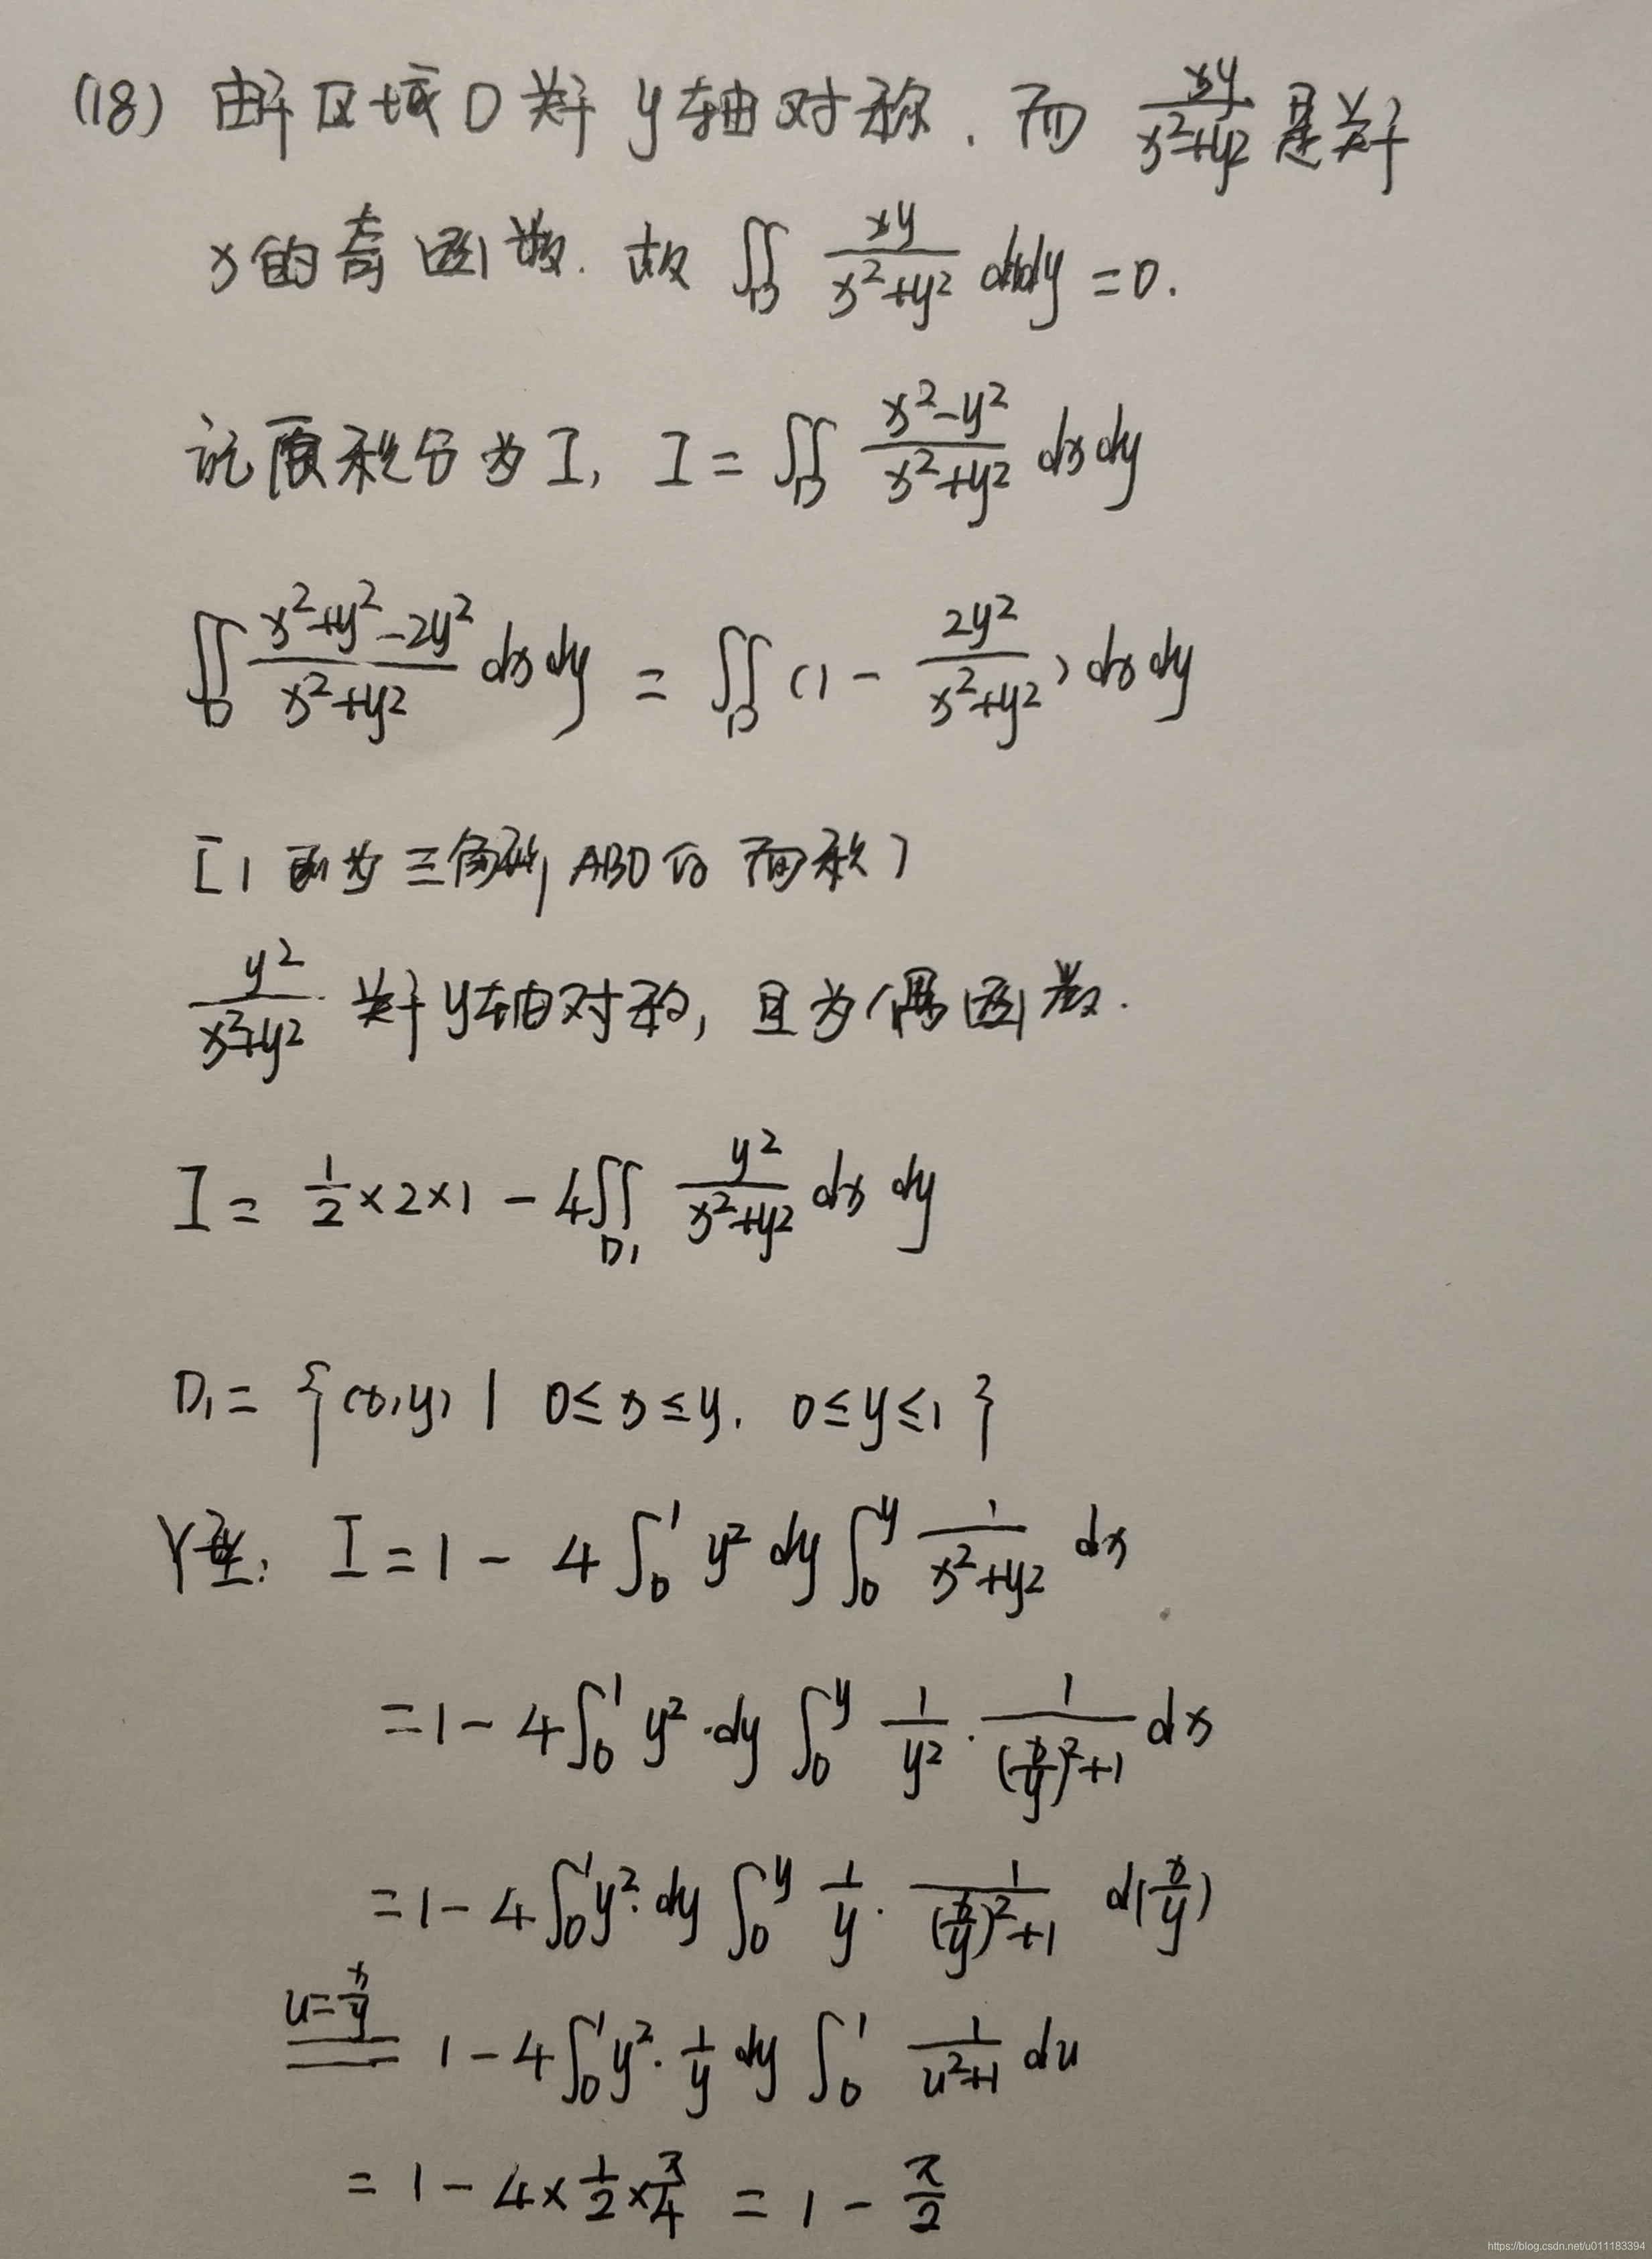 (18) 由于区域D关于y轴对称. 而 \frac{xy}{x^2+y^2} 是关于
x的奇函数. 故 \iint_D \frac{xy}{x^2+y^2} dxdy = 0.
记原积分为I, I = \iint_D \frac{x^2-y^2}{x^2+y^2} dxdy
\iint_D \frac{x^2+y^2-2y^2}{x^2+y^2} dxdy = \iint_D (1 - \frac{2y^2}{x^2+y^2}) dxdy
[1 即为三角形ABO的面积]
\frac{y^2}{x^2+y^2} 关于y轴对称, 且为偶函数.
I = \frac{1}{2}×2×1 - 4\iint_{D_1} \frac{y^2}{x^2+y^2} dx dy
D_1 = {(x,y) | 0≤x≤y. 0≤y≤1}
Y型: I = 1 - 4\int_0^1 y^2 dy \int_0^y \frac{1}{x^2+y^2} dx
= 1 - 4\int_0^1 y^2·dy \int_0^y \frac{1}{y^2}·\frac{1}{(\frac{x}{y})^2+1} dx
= 1 - 4\int_0^1 y^2·dy \int_0^y \frac{1}{y}·\frac{1}{(\frac{x}{y})^2+1} d(\frac{x}{y})
u=\frac{x}{y}
= 1 - 4\int_0^1 y^2·\frac{1}{y} dy \int_0^1 \frac{1}{u^2+1} du
= 1 - 4×\frac{1}{2}×\frac{π}{4} = 1 - \frac{π}{2}
https://blog.csdn.net/u011183394